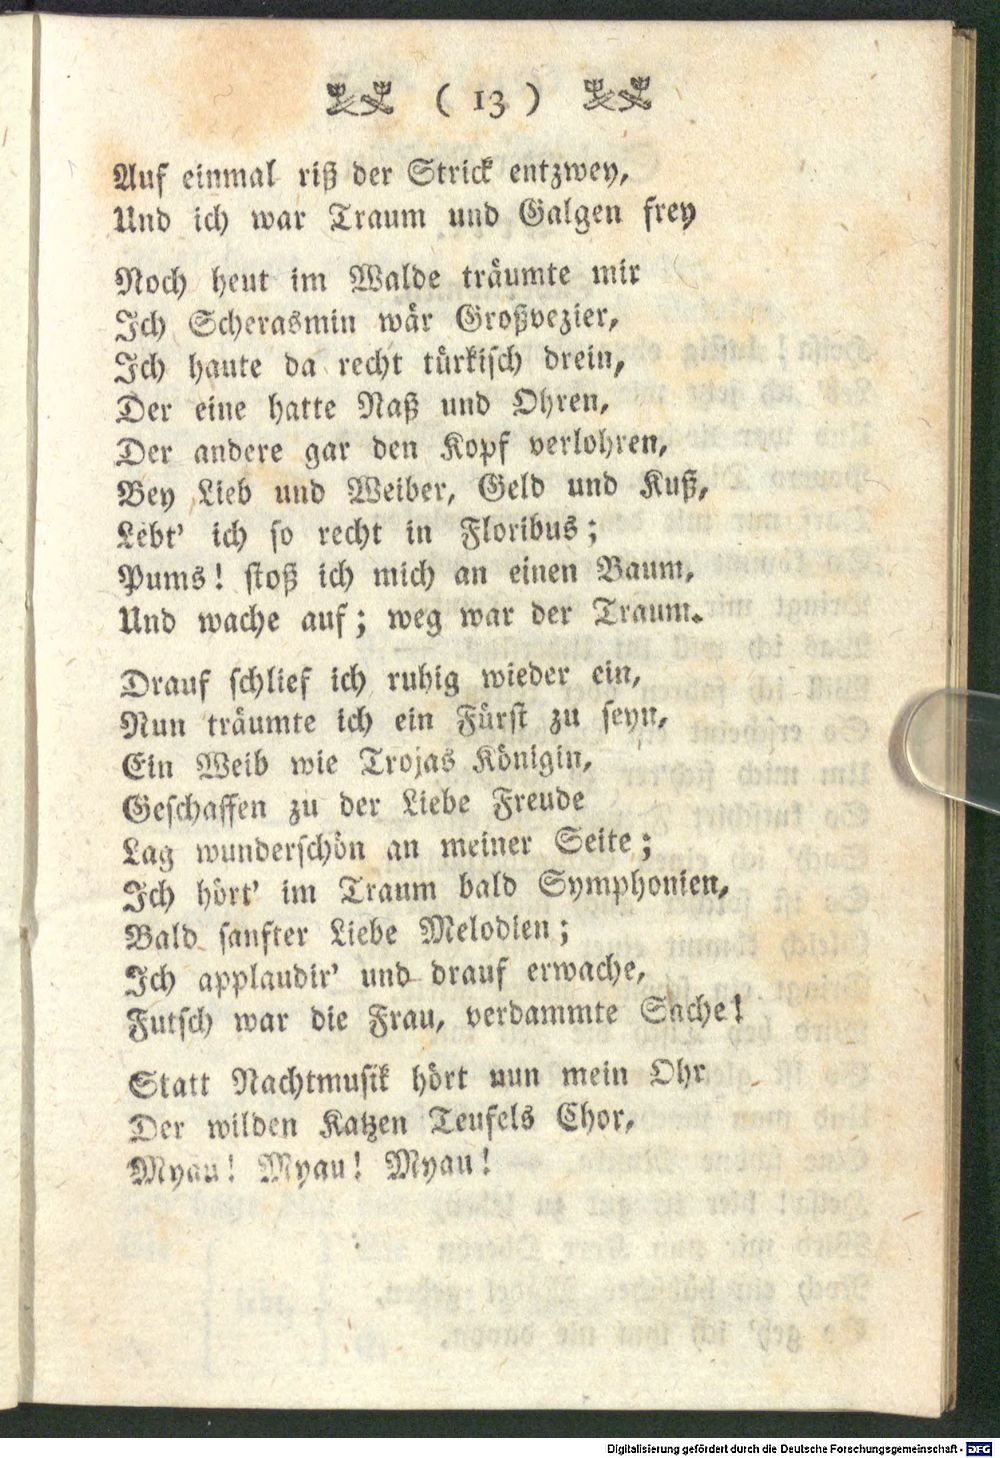 ( 13 )
Auf einmal riß der Strick entzwey,
Und ich war Traum und Galgen frey
Noch heut im Walde träumte mir
Ich Scherasmin wär Großvezier,
Ich haute da recht türkisch drein,
Der eine hatte Naß und Ohren,
Der andere gar den Kopf verlohren,
Bey Lieb und Weiber, Geld und Kuß,
Lebt' ich so recht in Floribus;
Pums! stoß ich mich an einen Baum,
Und wache auf; weg war der Traum.
Drauf schlief ich ruhig wieder ein,
Nun träumte ich ein Fürst zu seyn,
Ein Weib wie Trojas Königin,
Geschaffen zu der Liebe Freude
Lag wunderschön an meiner Seite;
Ich hört' im Traum bald Symphonien,
Bald sanfter Liebe Melodien;
Ich applaudir' und drauf erwache,
Futsch war die Frau, verdammte Sache!
Statt Nachtmusik hört nun mein Ohr
Der wilden Katzen Teufels Chor,
Myau! Myau! Myau!
Digitalisierung gefördert durch die Deutsche Forschungsgemeinschaft - DFG